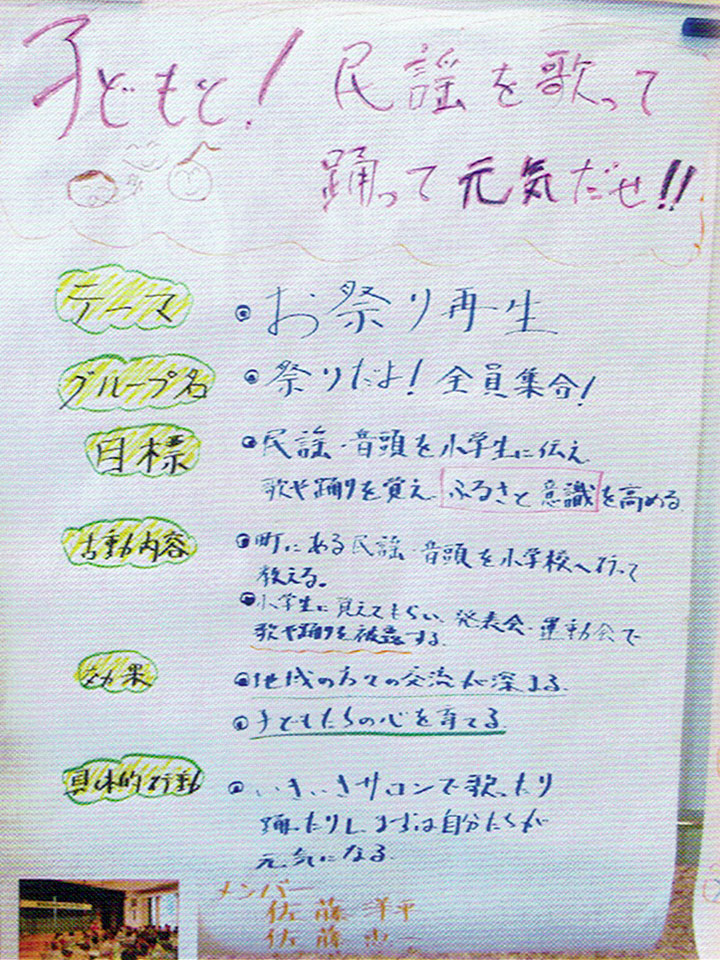 子どもと！民謡を歌って
踊って元気だせ!!
テーマ
●お祭り再生
グループ名
●祭りだよ！全員集合！
目標
●民謡・音頭を小学生に伝え
歌や踊りを覚え、ふるさと意識を高める
活動内容
●町にある民謡・音頭を小学校へ行って
教える。
●小学生に覚えてもらい、発表会・運動会で
歌や踊りを披露する。
効果
●地域の方々の交流が深まる
●子どもたちの心を育てる
具体的行動
●いきいきサロンで歌ったり
踊ったりし、まずは自分たちが
元気になる
メンバー
佐藤洋平
佐藤